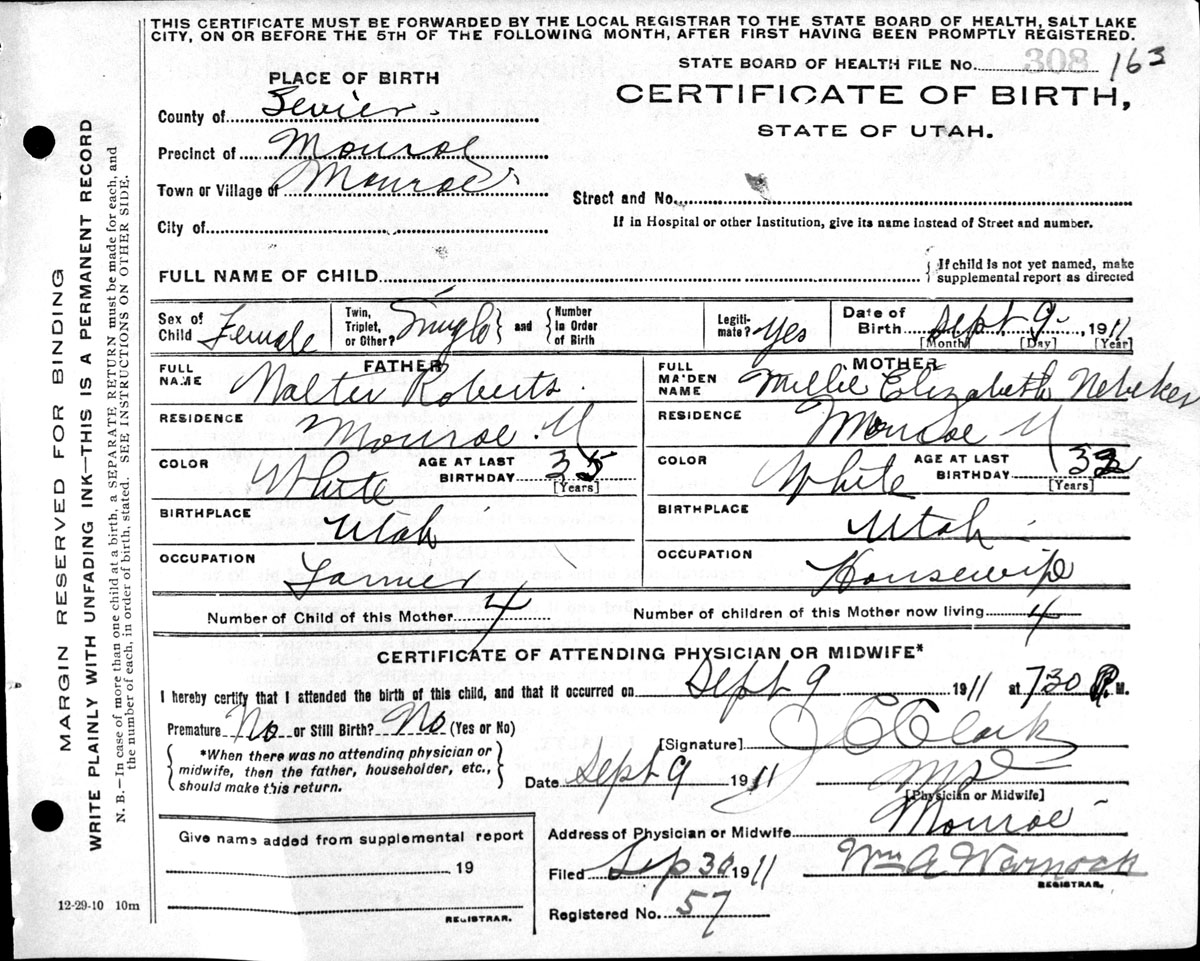 THIS CERTIFICATE MUST BE FORWARDED BY THE LOCAL REGISTRAR TO THE STATE BOARD OF HEALTH, SALT LAKE
CITY, ON OR BEFORE THE 5TH OF THE FOLLOWING MONTH, AFTER FIRST HAVING BEEN PROMPTLY REGISTERED.
STATE BOARD OF HEALTH FILE No. 308 163
PLACE OF BIRTH
CERTIFICATE OF BIRTH,
STATE OF UTAH.
County of Sevier
Precinct of Monroe
Town or Village of Monroe
Street and No.
City of
If in Hospital or other Institution, give its name instead of Street and number.
FULL NAME OF CHILD
If child is not yet named, make
supplemental report as directed
Sex of Child Female
Twin, Triplet, or Other? Single and Number in Order of Birth
Legiti-mate? Yes
Date of Birth Sept 9, 1911
[Month] [Day] [Year]
FATHER
FULL NAME Walter Roberts
MOTHER
FULL MAIDEN NAME Millie Elizabeth Nebeker
RESIDENCE Monroe U
RESIDENCE Monroe U
COLOR White AGE AT LAST BIRTHDAY 35 [Years]
COLOR White AGE AT LAST BIRTHDAY [Years]
BIRTHPLACE Utah
BIRTHPLACE Utah
OCCUPATION Farmer
OCCUPATION Housewife
Number of Child of this Mother 4
Number of children of this Mother now living 4
CERTIFICATE OF ATTENDING PHYSICIAN OR MIDWIFE*
I hereby certify that I attended the birth of this child, and that it occurred on Sept 9 1911 at 730 P. M.
Premature No or Still Birth? No (Yes or No)
*When there was no attending physician or
midwife, then the father, householder, etc.,
should make this return.
[Signature] J C Clark
Date Sept 9 1911 MD
[Physician or Midwife]
Give name added from supplemental report
19
REGISTRAR.
Address of Physician or Midwife Monroe
Filed Sep 30 1911 Wm A Warnock
REGISTRAR.
Registered No. 57
12-29-10 10m
MARGIN RESERVED FOR BINDING
WRITE PLAINLY WITH UNFADING INK—THIS IS A PERMANENT RECORD
N. B.—In case of more than one child at a birth, a SEPARATE RETURN must be made for each, and
the number of each, in order of birth, stated. SEE INSTRUCTIONS ON OTHER SIDE.